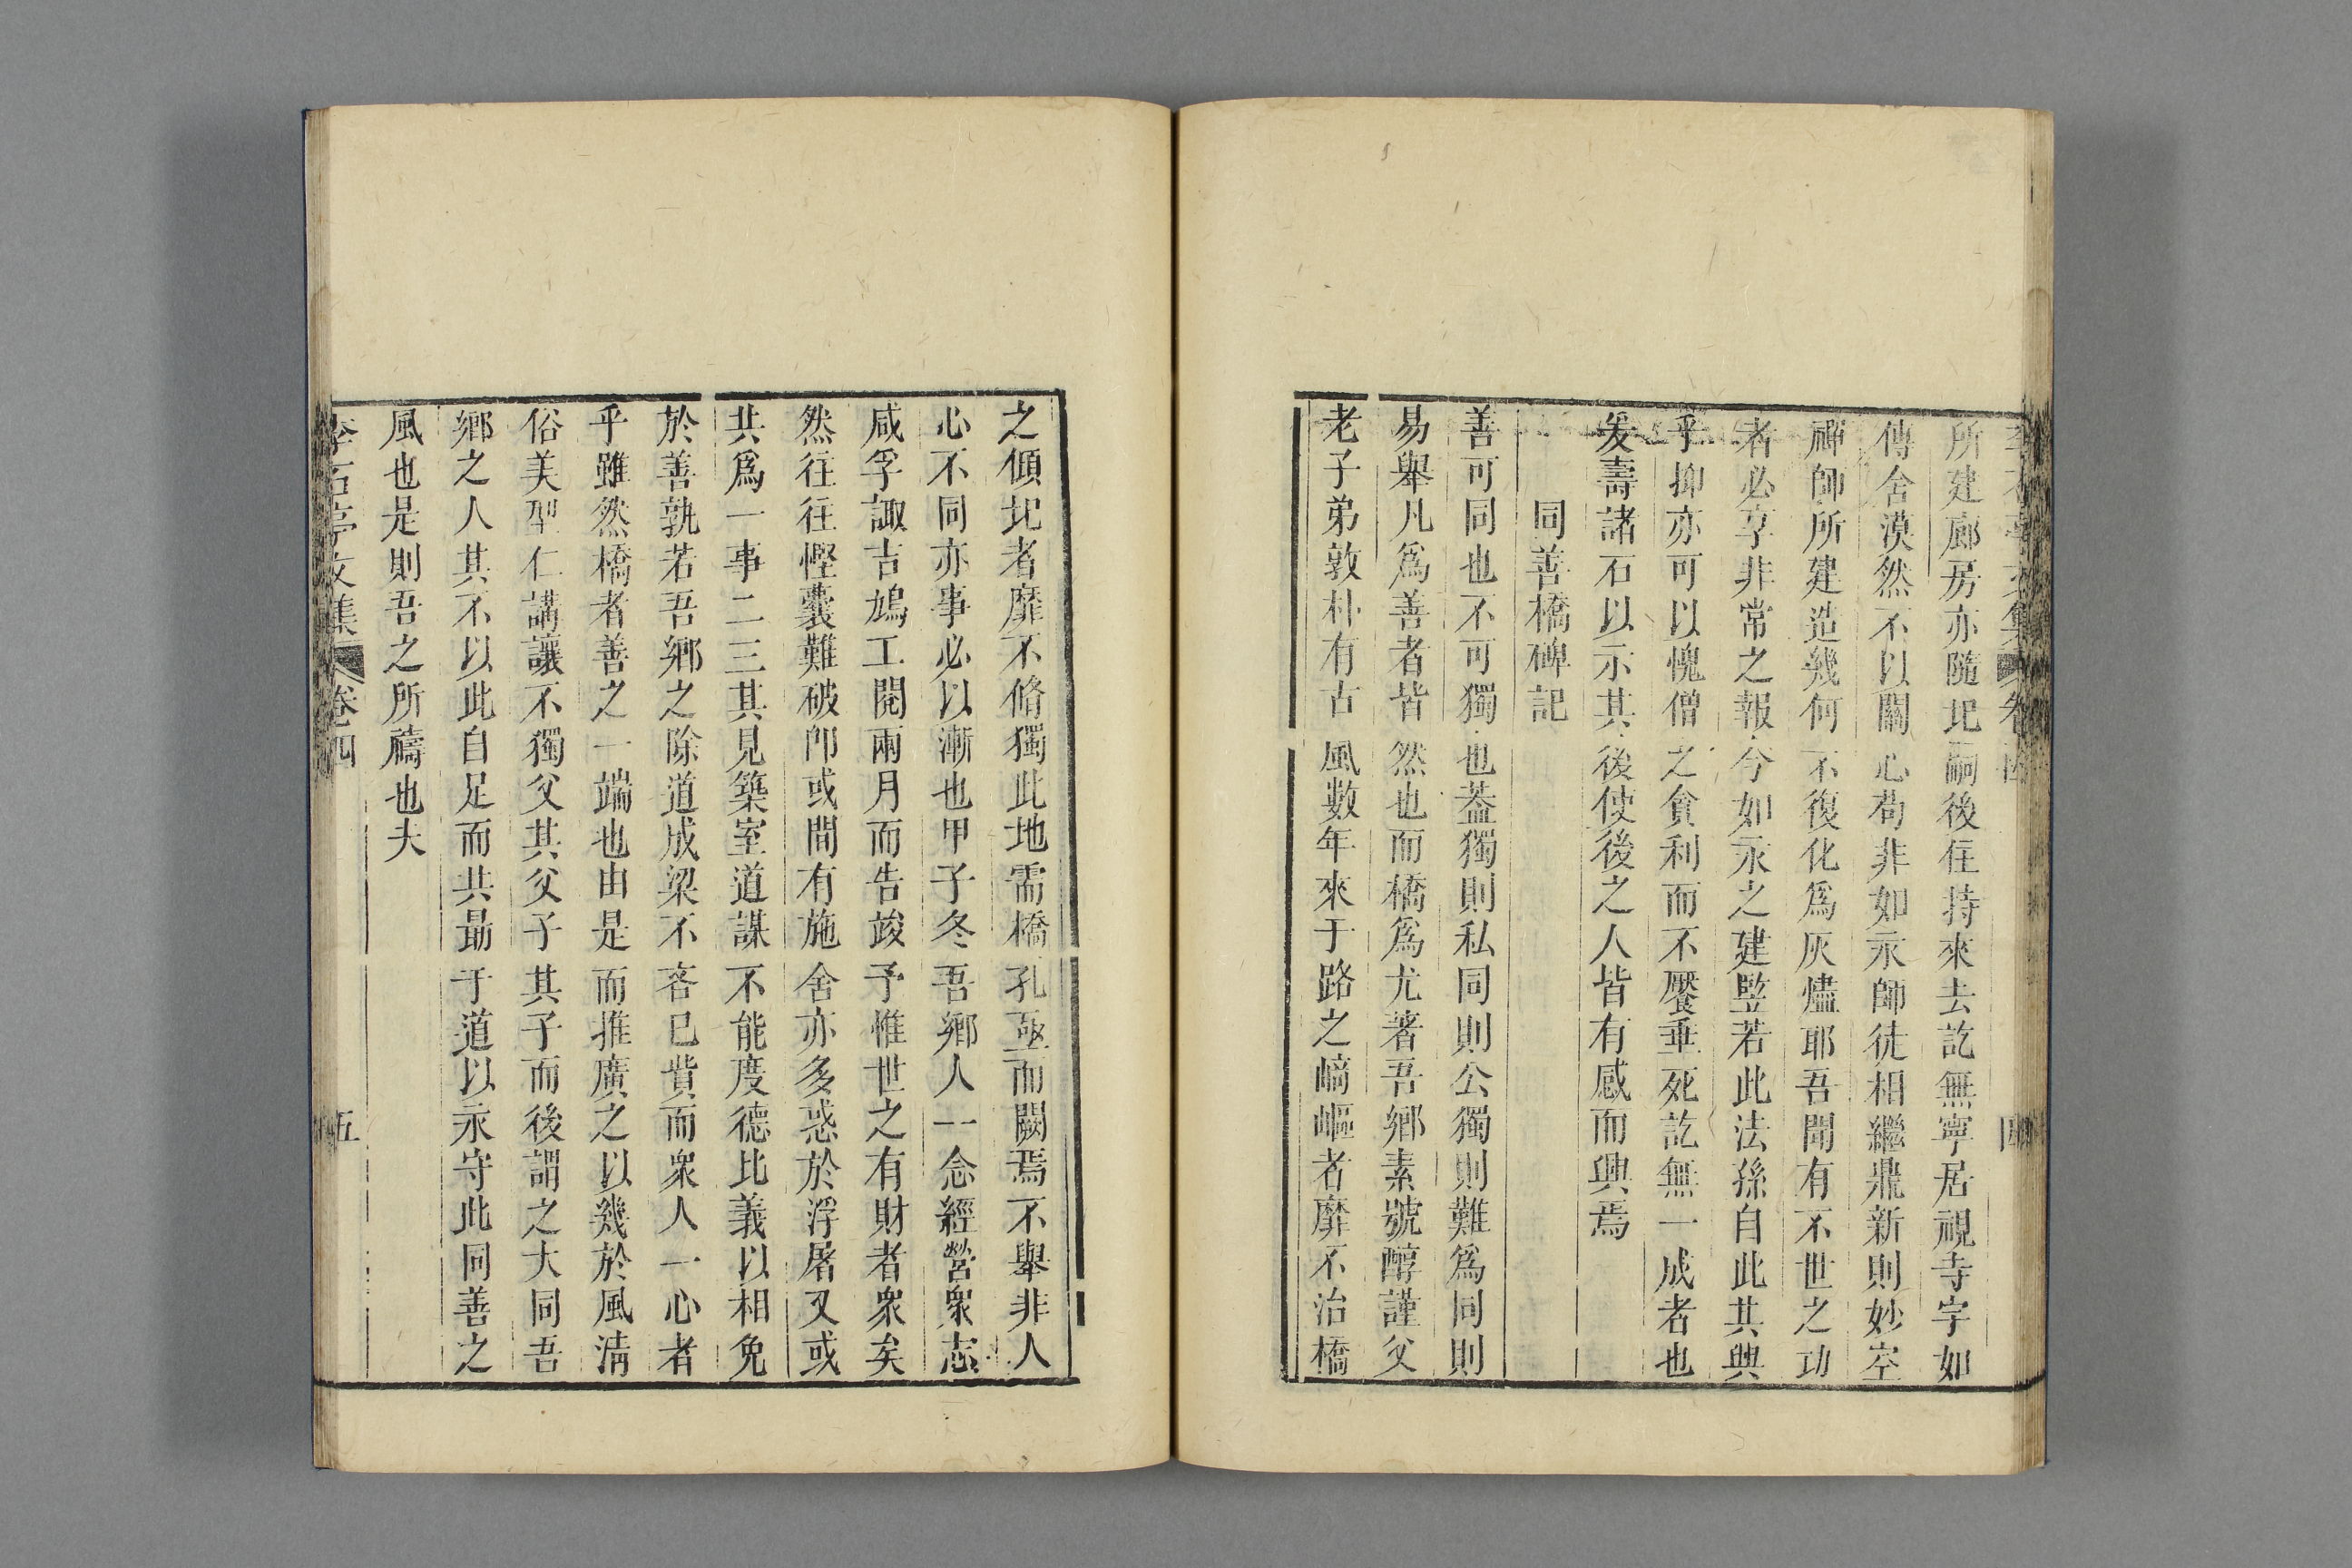 李石亭文集 卷四 四
所建廊房亦隨圯嗣後住持來去訖無寧居視寺宇如
傳舍漠然不以關心茍非如永師徒相繼鼎新則妙空
禪師所建造幾何不復化爲灰燼耶吾聞有不世之功
者必享非常之報今如永之建豎若此法孫自此其興
乎抑亦可以愧僧之貪利而不饜垂死訖無一成者也
爰壽諸石以示其後使後之人皆有感而興焉
同善橋碑記
善可同也不可獨也葢獨則私同則公獨則難爲同則
易舉凡爲善者皆然也而橋爲尤著吾鄉素號醇謹父
老子弟敦朴有古風數年來于路之崎嶇者靡不治橋
之傾圯者靡不脩獨此地需橋孔亟而闕焉不舉非人
心不同亦事必以漸也甲子冬吾鄉人一念經營衆志
咸孚諏吉鳩工閱兩月而告竣予惟世之有財者衆矣
然往往慳囊難破卽或間有施舍亦多惑於浮屠又或
共爲一事二三其見築室道謀不能度德比義以相免
於善孰若吾鄉之除道成梁不吝已貲而衆人一心者
乎雖然橋者善之一端也由是而推廣之以幾於風淸
俗美型仁講讓不獨父其父子其子而後謂之大同吾
鄉之人其不以此自足而共勗于道以永守此同善之
風也是則吾之所禱也夫
李石亭文集 卷四 五